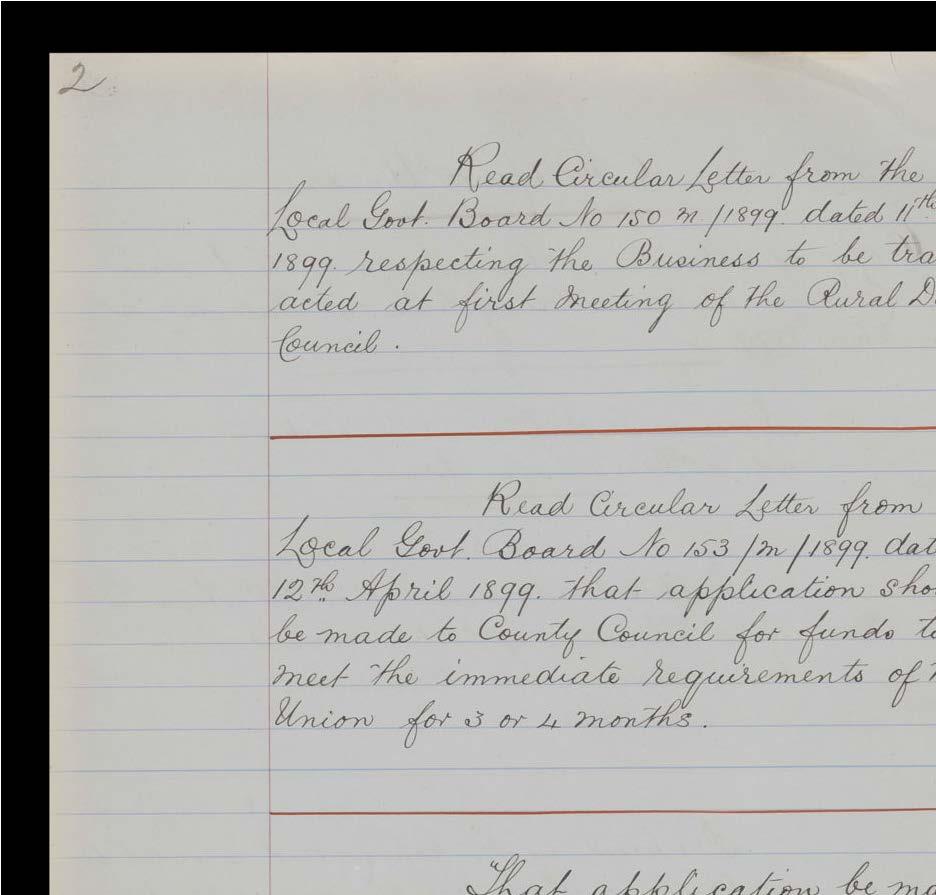 2
Read Circular Letter from the
Local Govt. Board No 150 m/1899. dated 11th
1899. respecting the Business to be tra
acted at first meeting of the Rural D
Council.
Read Circular Letter from
Local Govt. Board No 153/m/1899. dat
12th April 1899. that application sho
be made to County Council for funds to
meet the immediate requirements of
Union for 3 or 4 months.
"That application be ma